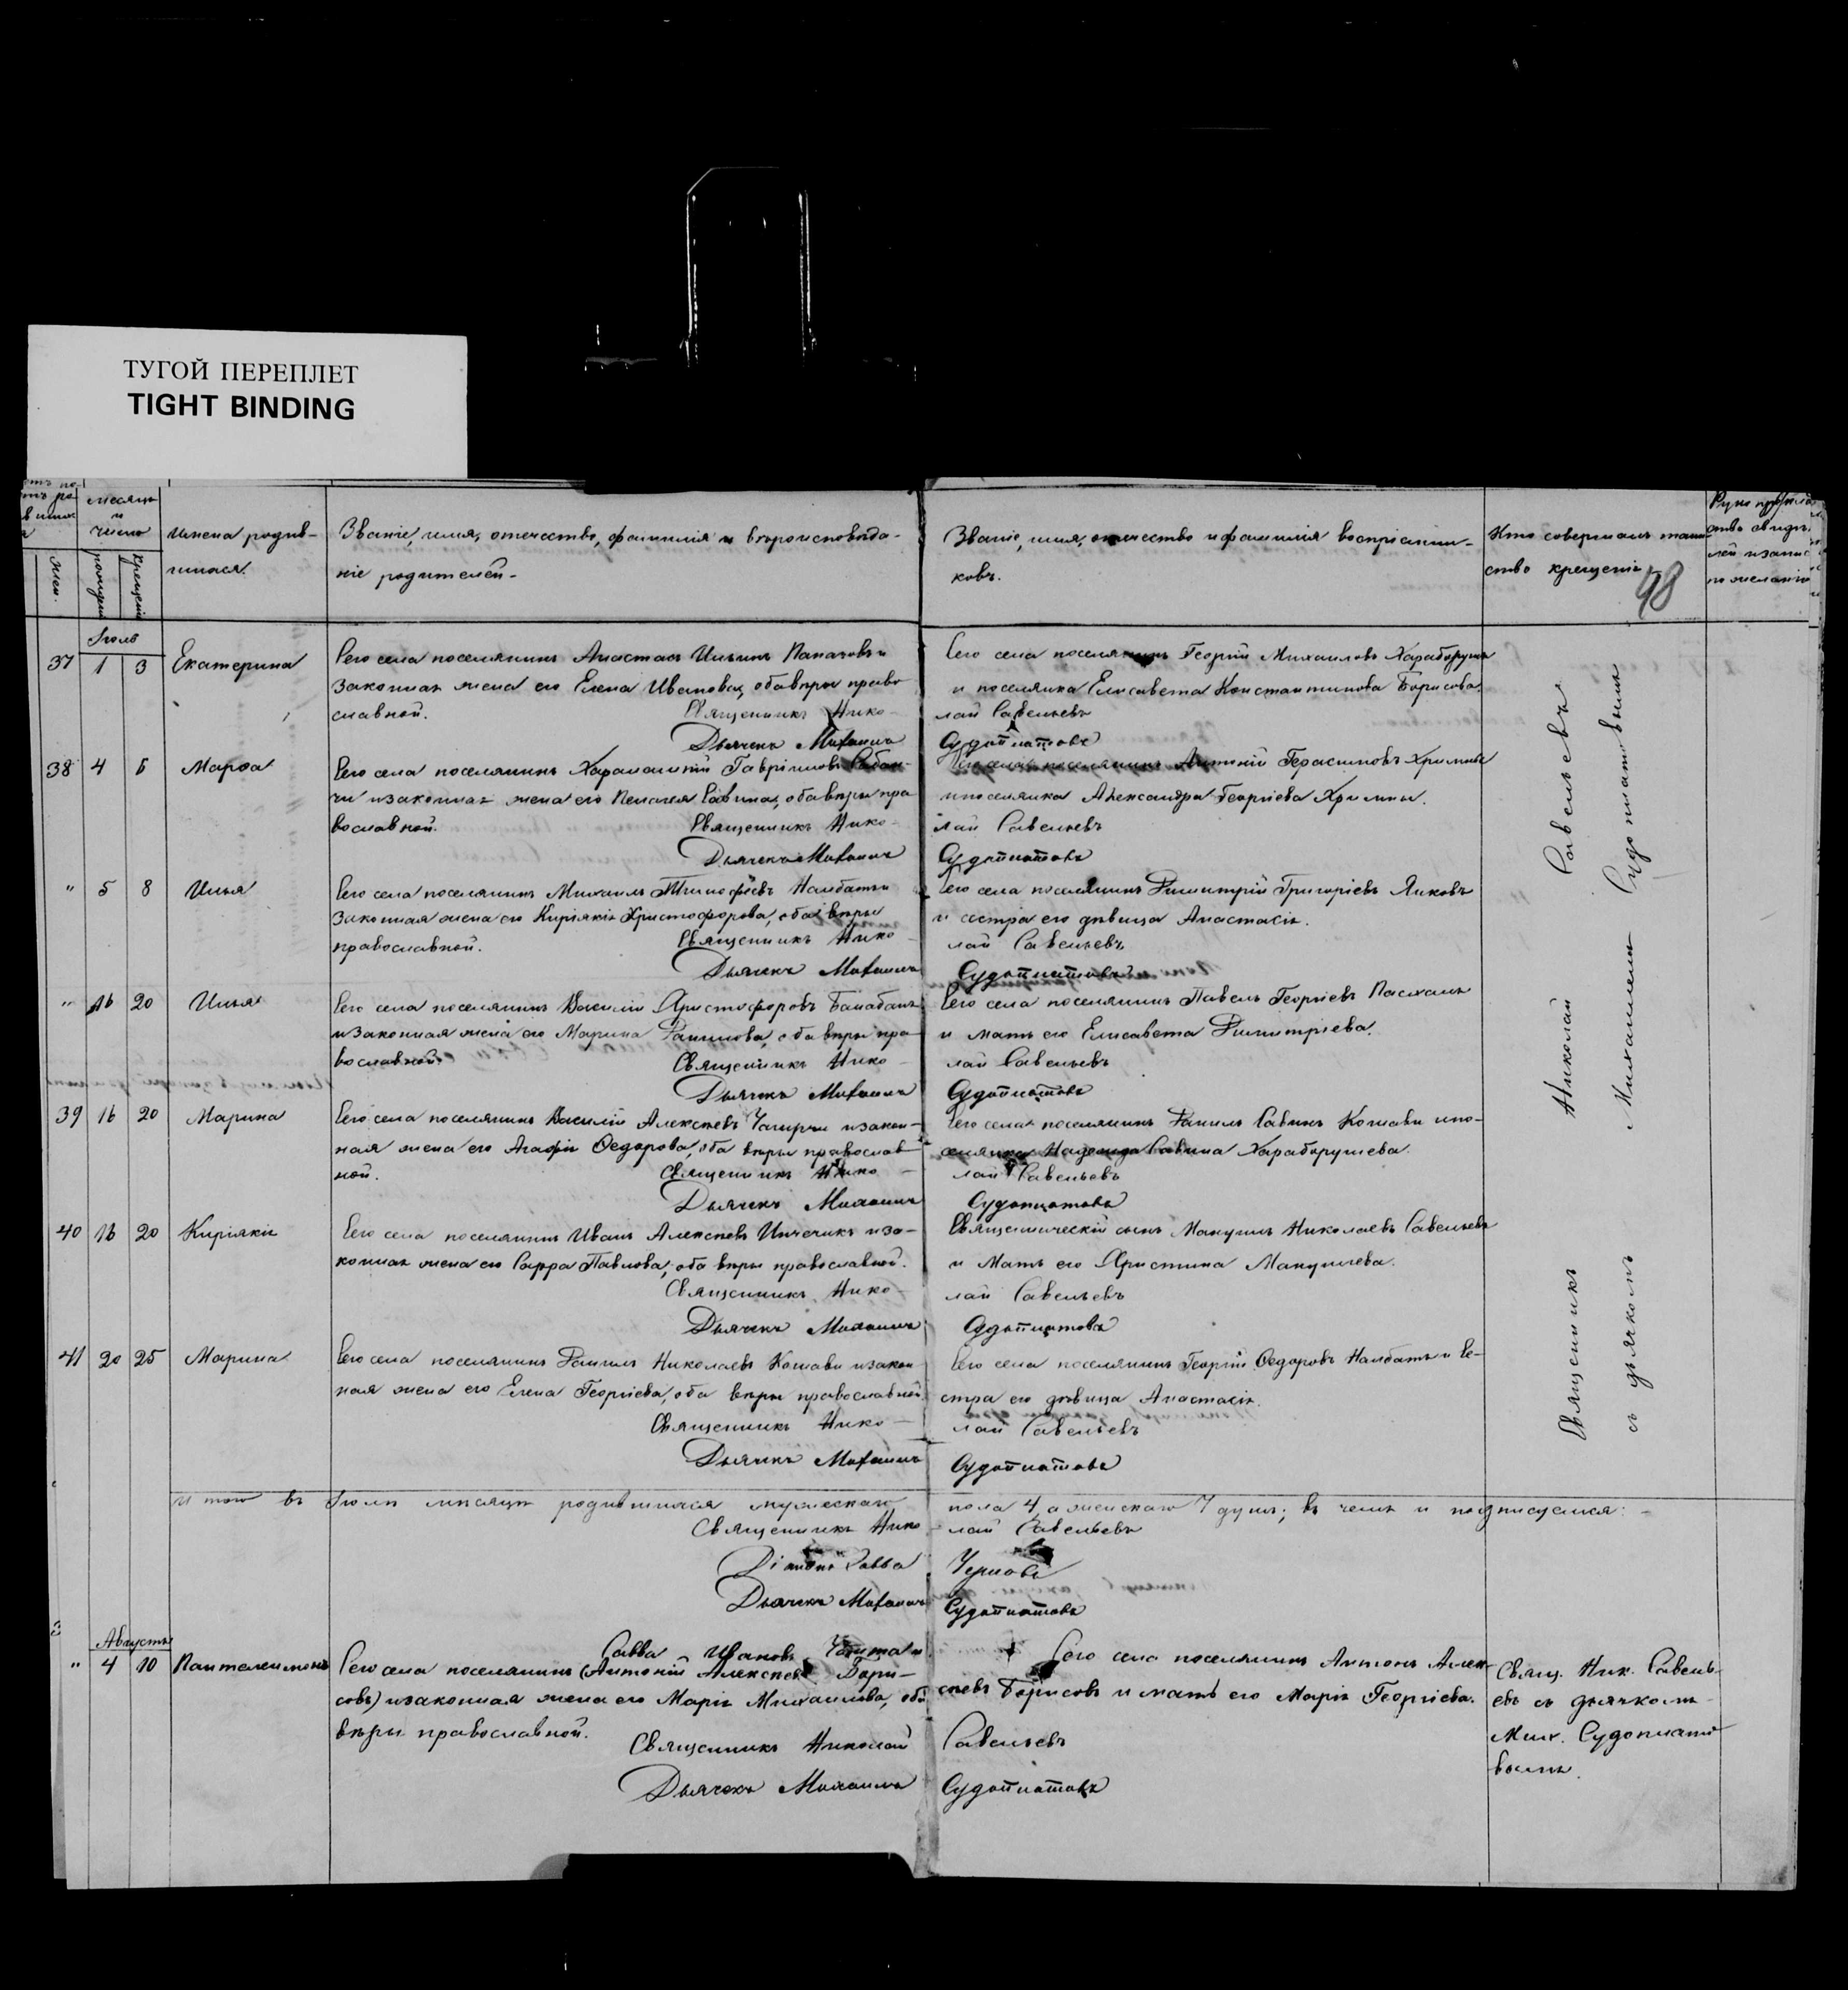 ТУГОЙ ПЕРЕПЛЕТ
TIGHT BINDING
месяцъ
и
число
имена родив-
шихся.
Званіе, имя, отечество, фамилія и вѣроисповѣда-
ніе родителей.
Званіе, имя, отечество и фамилія воспріемни-
ковъ.
Кто совершалъ таин-
ство крещенія
98
жен.
рожденія
крещенія
Іюль
37 1 3 Екатерина
Сего села поселянинъ Анастасъ Ильинъ и
законная жена его Елена Иванова, оба вѣры право
славной.
Священникъ Николай Савельевъ
Дьячекъ Михаилъ Судоплатовъ
Сего села поселянинъ Георгій Михаиловъ Харабурушъ
и поселянка Елисавета Константинова Борисова.
38 4 Марѳа
Сего села поселянинъ Харалампій Гавріиловъ
и законная жена его Пелагея Савина, оба вѣры пра
вославной.
Священникъ Николай Савельевъ
Дьячекъ Михаилъ Судоплатовъ
Сего села поселянинъ Герасимовъ
и поселянка Александра Георгіева
" 5 8 Илья
Сего села поселянинъ Михаилъ Тимоѳеевъ Налбатъ и
законная жена его Киріякія Христофорова, оба вѣры
православной.
Священникъ Николай Савельевъ
Дьячекъ Михаилъ Судоплатовъ
Сего села поселянинъ Димитрій Григоріевъ Яковъ
и сестра его дѣвица Анастасія.
" 16 20 Илья
Сего села поселянинъ Василій Христофоровъ Балабанъ
и законная жена его Марина Даниилова, оба вѣры пра
вославной.
Священникъ Николай Савельевъ
Дьячекъ Михаилъ Судоплатовъ
Сего села поселянинъ Павелъ Георгіевъ Пасхалъ
и мать его Елисавета Димитріева.
39 16 20 Марина
Сего села поселянинъ Василій Алексѣевъ и закон-
ная жена его Агафія Ѳедорова, оба вѣры православ
ной.
Священникъ Николай Савельевъ
Дьячекъ Михаилъ Судоплатовъ
Сего села поселянинъ Даніилъ Савинъ Кошави и по-
селянка Надежда Савина Харабурушева.
40 16 20 Киріякія
Сего села поселянинъ Иванъ Алексѣевъ и за-
конная жена его Сарра Павлова, оба вѣры православной.
Священникъ Николай Савельевъ
Дьячекъ Михаилъ Судоплатовъ
Священническій сынъ Мануилъ Николаевъ Савельевъ
и Мать его Христина Мануилева.
41 20 25 Марина
Сего села поселянинъ Даніилъ Николаевъ Кошави и закон
ная жена его Елена Георгіева, оба вѣры православной.
Священникъ Николай Савельевъ
Дьячекъ Михаилъ Судоплатовъ
Сего села поселянинъ Георгій Ѳедоровъ Налбатъ и се-
стра его дѣвица Анастасія.
Священникъ Николай Савельевъ
съ дьячкомъ Михаиломъ Судоплатовымъ
И того въ Іюлѣ мѣсяцѣ родившихся мужескаго пола 4, а женскаго 7 душъ; въ чемъ и подписуемся:
Священникъ Николай Савельевъ
Діаконъ Савва Черновъ
Дьячекъ Михаилъ Судоплатовъ
Августъ
" 4 10 Пантелеимонъ
Савва Ивановъ
Сего села поселянинъ (Антоній Алексѣевъ Бори-
совъ) и законная жена его Марія Михаилова, оба
вѣры православной.
Священникъ Николай Савельевъ
Дьячекъ Михаилъ Судоплатовъ
Сего села поселянинъ Антонъ Алек-
сѣевъ Борисовъ и мать его Марія Георгіева.
Свящ. Ник. Савель-
евъ съ дьячкомъ
Мих. Судоплато
вымъ.